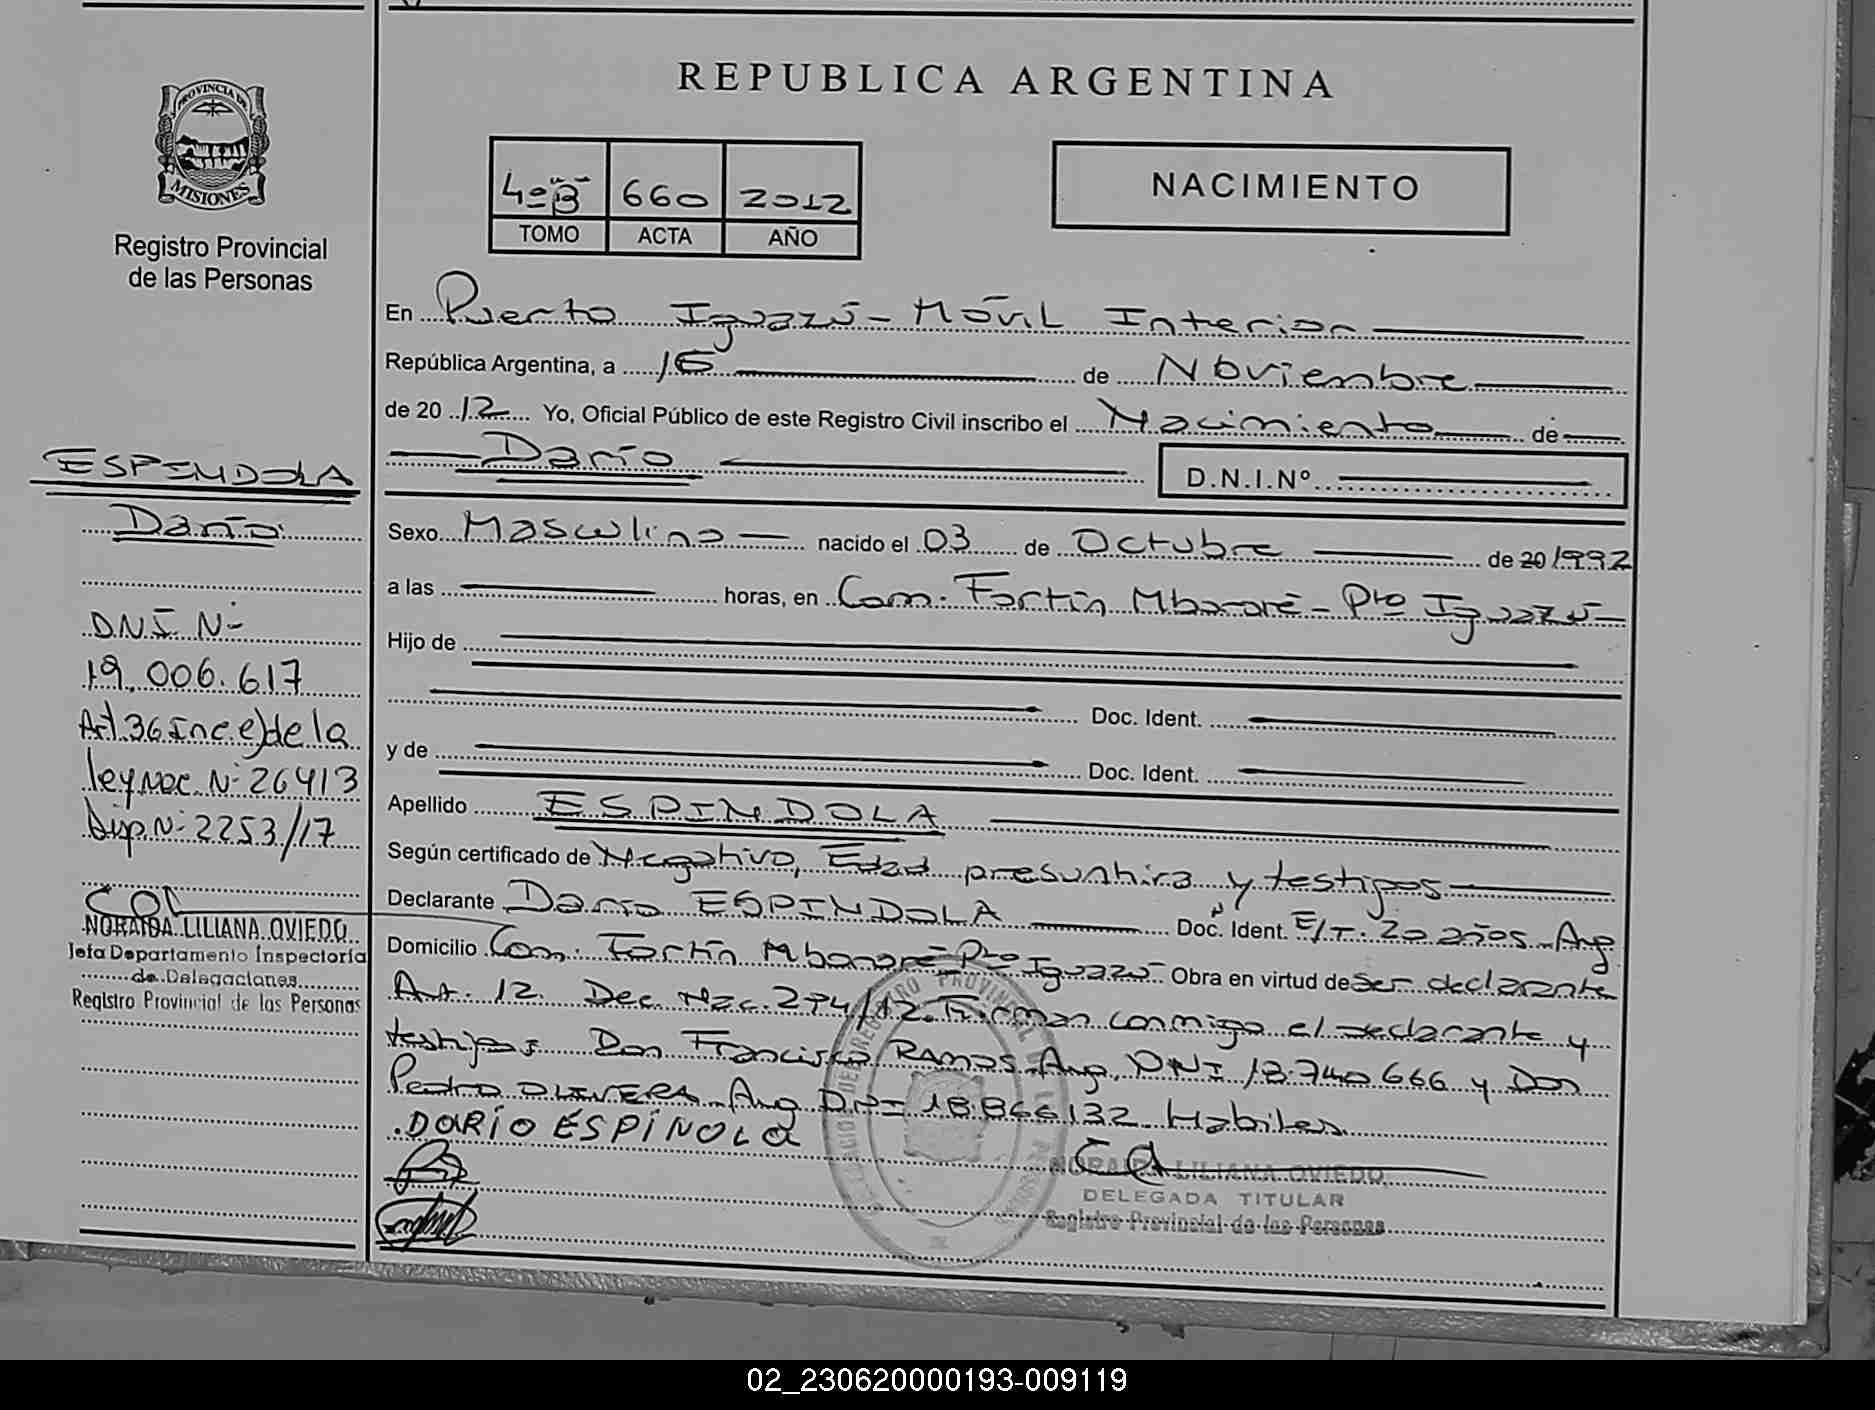 REPUBLICA ARGENTINA
PROVINCIA DE
MISIONES
Registro Provincial
de las Personas
4º "B" 660 2012
TOMO ACTA AÑO
NACIMIENTO
En Puerto Iguazú - Móvil Interior
República Argentina, a 16 de Noviembre
de 2012 Yo, Oficial Público de este Registro Civil inscribo el Nacimiento de
Darío D.N.I.Nº
Sexo Masculino nacido el 03 de Octubre de 20 1992
a las horas, en Com. Fortín Mbororé - Pto Iguazú
Hijo de
Doc. Ident.
y de Doc. Ident.
Apellido ESPINDOLA
Según certificado de Negativo, Edad presuntiva y testigos
Declarante Darío ESPINDOLA Doc. Ident. E/T. 20 años - Arg
Domicilio Com. Fortín Mbororé Pto Iguazú Obra en virtud de Ser declarante
Art. 12. Dec. Nac. 274/12. Firman conmigo el declarante y
testigos Don Francisco RAMOS Arg. DNI 18.740.666 y Don
Pedro OLIVERA Arg DNI 18.866.132 Habiles
DARÍO ESPÍNOLA
NORAIDA LILIANA OVIEDO
DELEGADA TITULAR
Registro Provincial de las Personas
ESPINDOLA
Darío
DNI Nº
19.006.617
Art 36 Inc e) de la
ley Nac. Nº 26413
Disp. Nº 2253/17
NORAIDA LILIANA OVIEDO
Jefa Departamento Inspectoría
de Delegaciones
Registro Provincial de las Personas
02_230620000193-009119